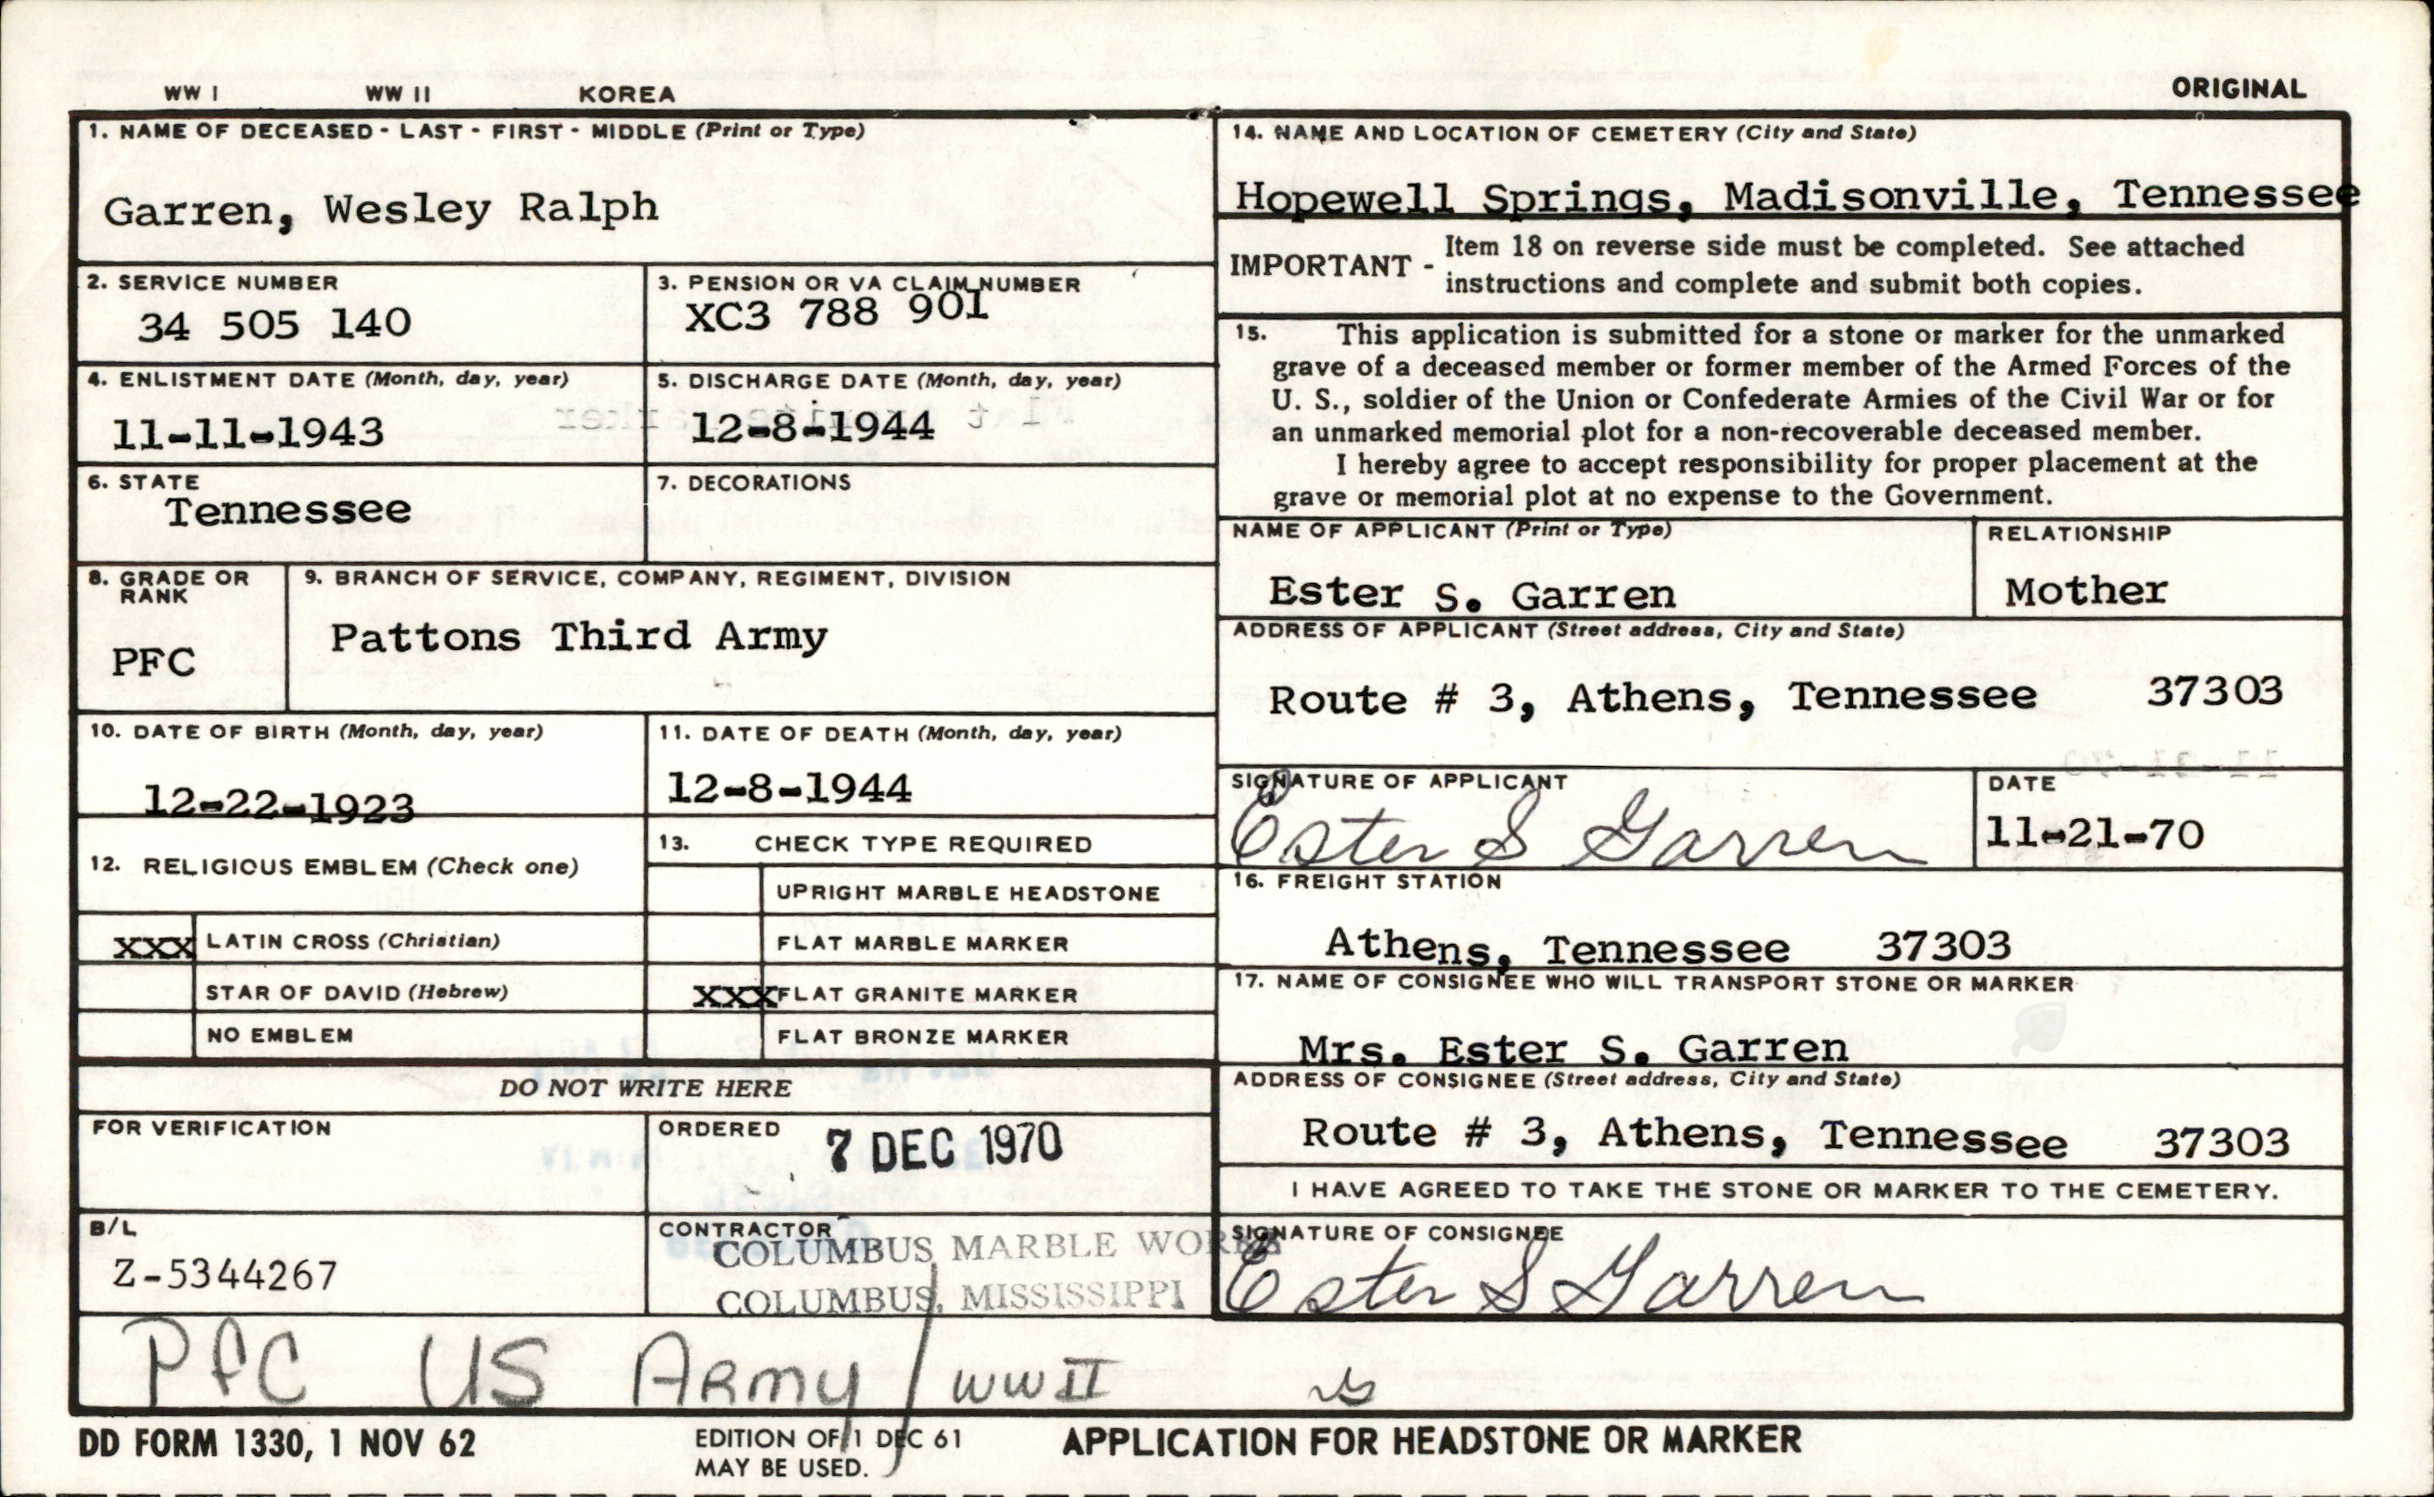 WW I WW II KOREA
ORIGINAL
1. NAME OF DECEASED - LAST - FIRST - MIDDLE (Print or Type)
Garren, Wesley Ralph
2. SERVICE NUMBER
34 505 140
3. PENSION OR VA CLAIM NUMBER
XC3 788 901
4. ENLISTMENT DATE (Month, day, year)
11-11-1943
5. DISCHARGE DATE (Month, day, year)
12-8-1944
6. STATE
Tennessee
7. DECORATIONS
8. GRADE OR
RANK
PFC
9. BRANCH OF SERVICE, COMPANY, REGIMENT, DIVISION
Pattons Third Army
10. DATE OF BIRTH (Month, day, year)
12-22-1923
11. DATE OF DEATH (Month, day, year)
12-8-1944
12. RELIGIOUS EMBLEM (Check one)
XXX LATIN CROSS (Christian)
STAR OF DAVID (Hebrew)
NO EMBLEM
13. CHECK TYPE REQUIRED
UPRIGHT MARBLE HEADSTONE
FLAT MARBLE MARKER
XXX FLAT GRANITE MARKER
FLAT BRONZE MARKER
DO NOT WRITE HERE
FOR VERIFICATION
ORDERED
7 DEC 1970
B/L
Z-5344267
CONTRACTOR
COLUMBUS MARBLE WORKS
COLUMBUS, MISSISSIPPI
14. NAME AND LOCATION OF CEMETERY (City and State)
Hopewell Springs, Madisonville, Tennessee
IMPORTANT - Item 18 on reverse side must be completed. See attached
instructions and complete and submit both copies.
15. This application is submitted for a stone or marker for the unmarked
grave of a deceased member or former member of the Armed Forces of the
U. S., soldier of the Union or Confederate Armies of the Civil War or for
an unmarked memorial plot for a non-recoverable deceased member.
I hereby agree to accept responsibility for proper placement at the
grave or memorial plot at no expense to the Government.
NAME OF APPLICANT (Print or Type)
Ester S. Garren
RELATIONSHIP
Mother
ADDRESS OF APPLICANT (Street address, City and State)
Route # 3, Athens, Tennessee 37303
SIGNATURE OF APPLICANT
Ester S Garren
DATE
11-21-70
16. FREIGHT STATION
Athens, Tennessee 37303
17. NAME OF CONSIGNEE WHO WILL TRANSPORT STONE OR MARKER
Mrs. Ester S. Garren
ADDRESS OF CONSIGNEE (Street address, City and State)
Route # 3, Athens, Tennessee 37303
I HAVE AGREED TO TAKE THE STONE OR MARKER TO THE CEMETERY.
SIGNATURE OF CONSIGNEE
Ester S Garren
PFC US ARMY / WW II
DD FORM 1330, 1 NOV 62
EDITION OF 1 DEC 61
MAY BE USED.
APPLICATION FOR HEADSTONE OR MARKER